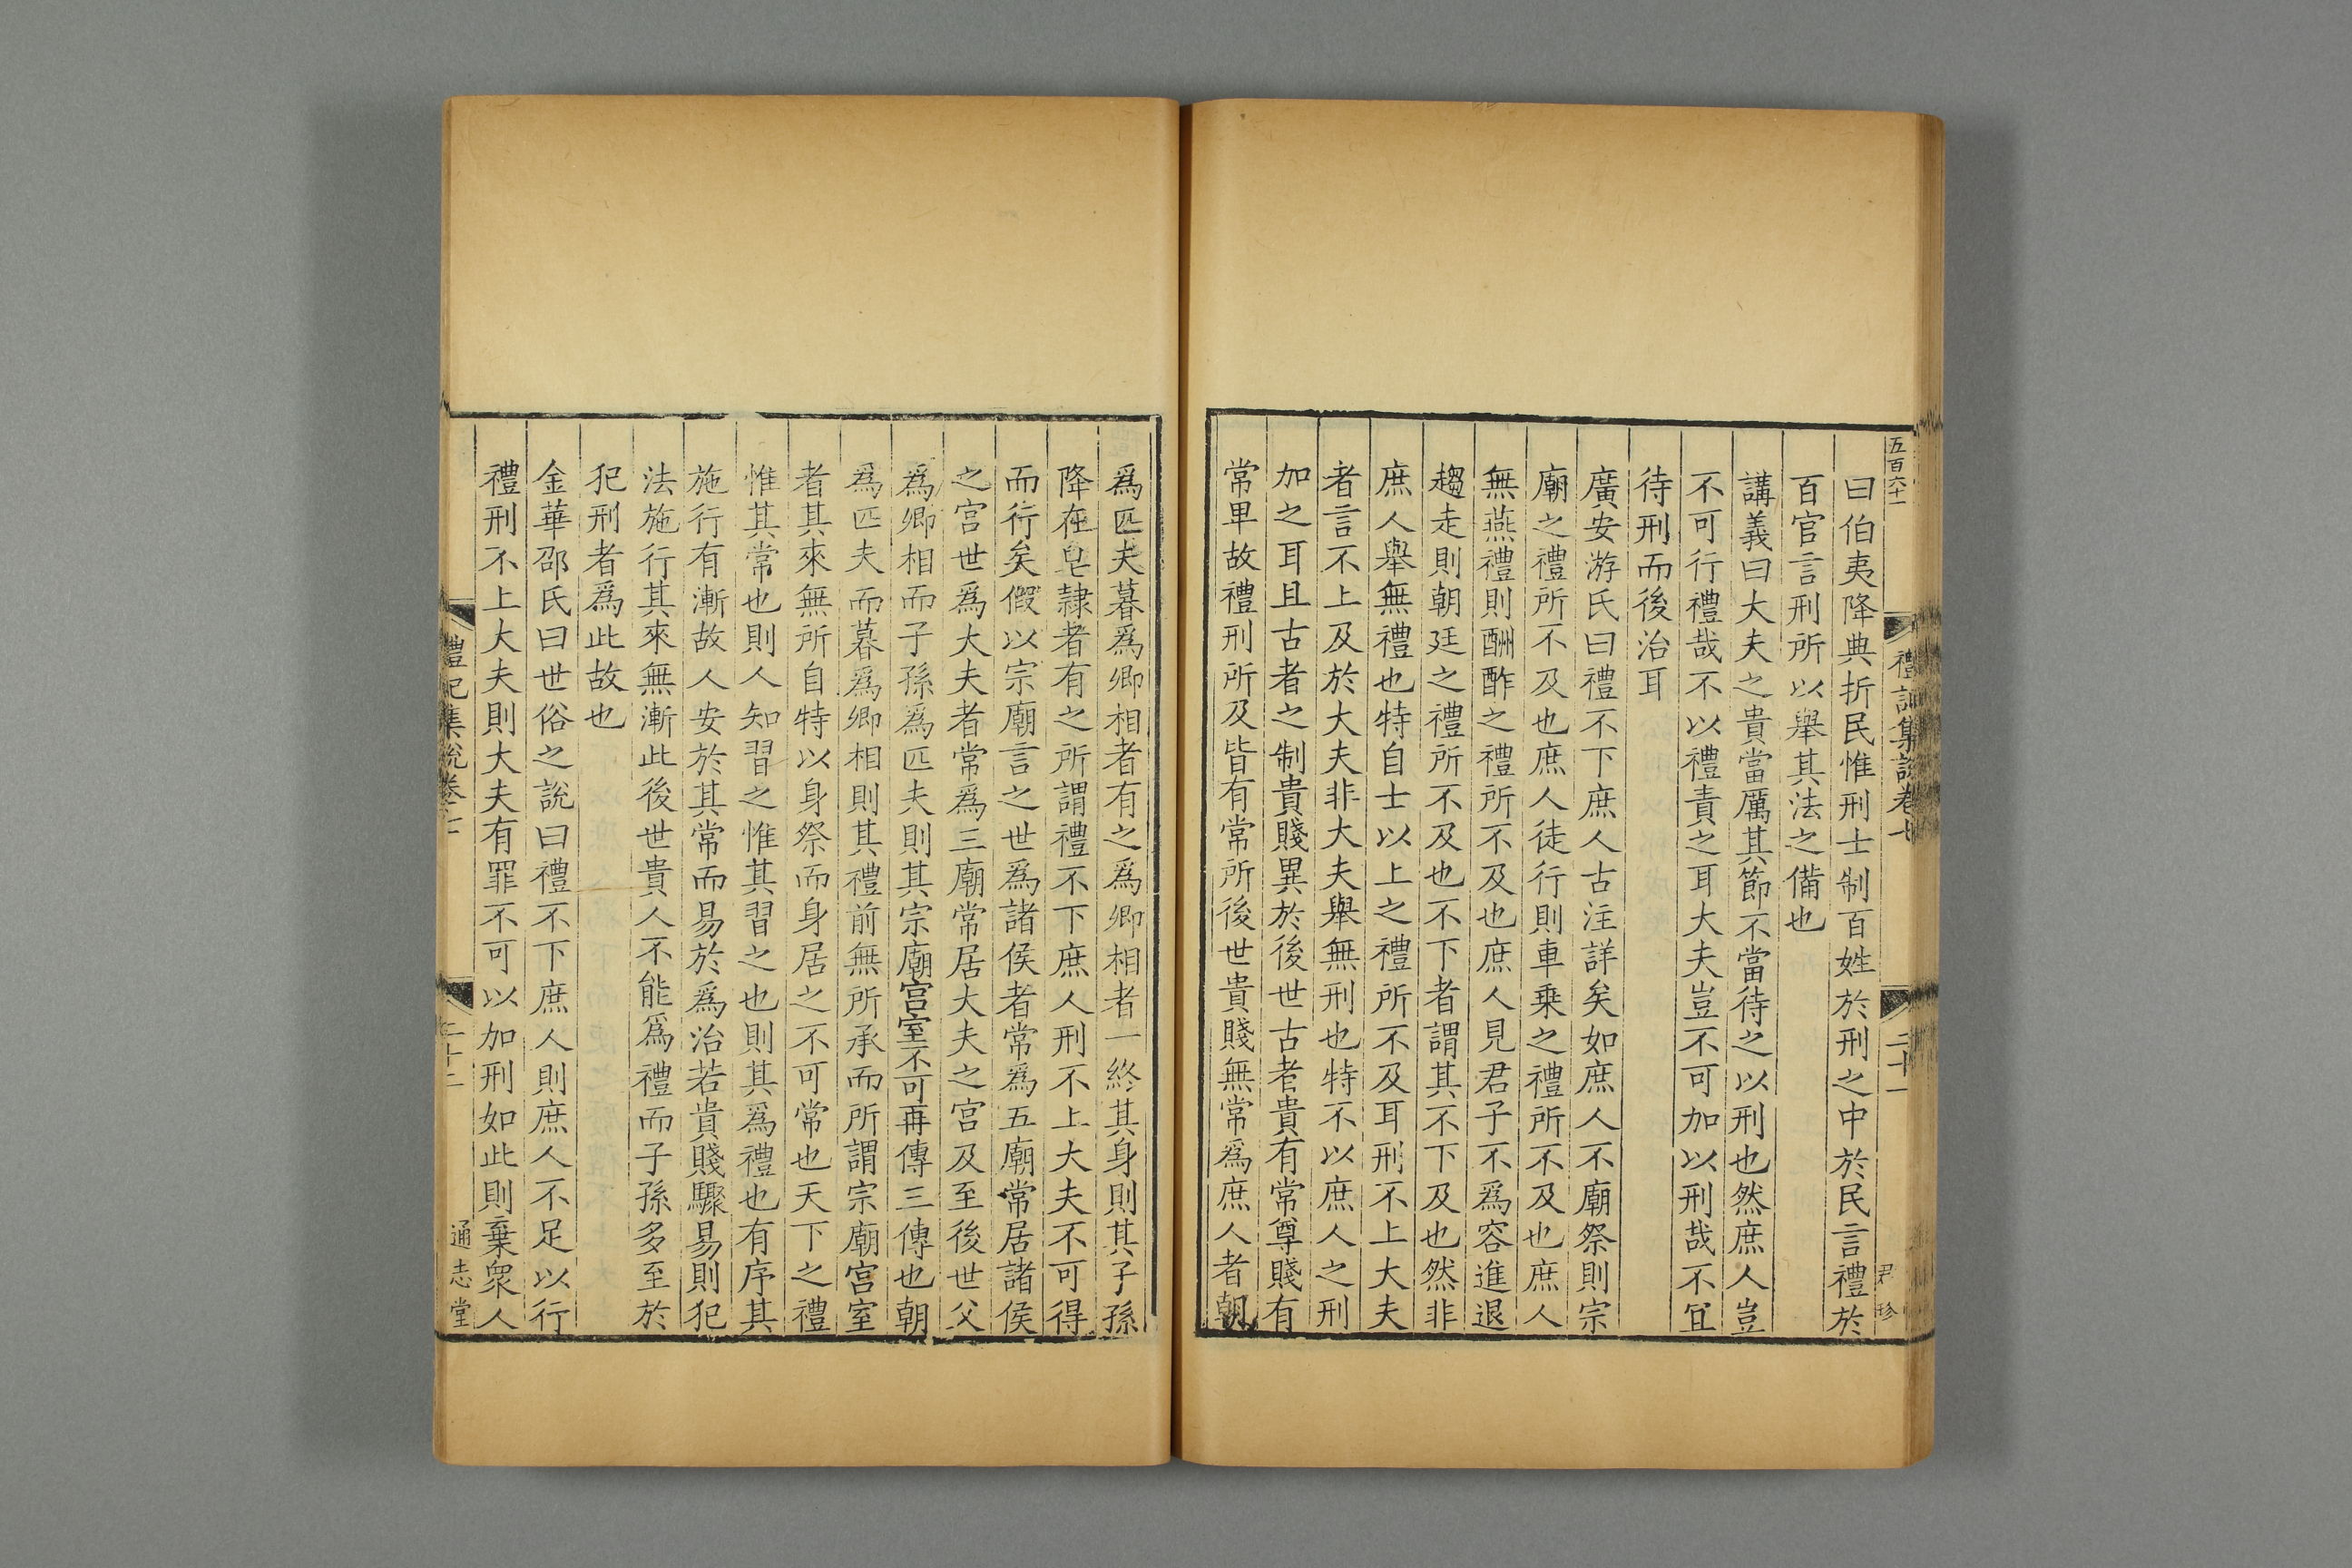 五百六十一
禮記集說卷七
二十一
君珍
曰伯夷降典折民惟刑士制百姓於刑之中於民言禮於
百官言刑所以舉其法之備也
講義曰大夫之貴當厲其節不當待之以刑也然庶人豈
不可行禮哉不以禮責之耳大夫豈不可加以刑哉不冝
待刑而後治耳
廣安游氏曰禮不下庶人古注詳矣如庶人不廟祭則宗
廟之禮所不及也庶人徒行則車乗之禮所不及也庶人
無燕禮則酬酢之禮所不及也庶人見君子不爲容進退
趨走則朝廷之禮所不及也不下者謂其不下及也然非
庶人舉無禮也特自士以上之禮所不及耳刑不上大夫
者言不上及於大夫非大夫舉無刑也特不以庶人之刑
加之耳且古者之制貴賤異於後世古者貴有常尊賤有
常卑故禮刑所及皆有常所後世貴賤無常爲庶人者朝
爲匹夫暮爲卿相者有之爲卿相者一終其身則其子孫
降在皂隷者有之所謂禮不下庶人刑不上大夫不可得
而行矣假以宗廟言之世爲諸侯者常爲五廟常居諸侯
之宮世爲大夫者常爲三廟常居大夫之宮及至後世父
爲卿相而子孫爲匹夫則其宗廟宮室不可再傳三傳也朝
爲匹夫而暮爲卿相則其禮前無所承而所謂宗廟宮室
者其來無所自特以身祭而身居之不可常也天下之禮
惟其常也則人知習之惟其習之也則其爲禮也有序其
施行有漸故人安於其常而易於爲治若貴賤驟易則犯
法施行其來無漸此後世貴人不能爲禮而子孫多至於
犯刑者爲此故也
金華邵氏曰世俗之說曰禮不下庶人則庶人不足以行
禮刑不上大夫則大夫有罪不可以加刑如此則棄衆人
禮記集說卷七
二十二
通志堂